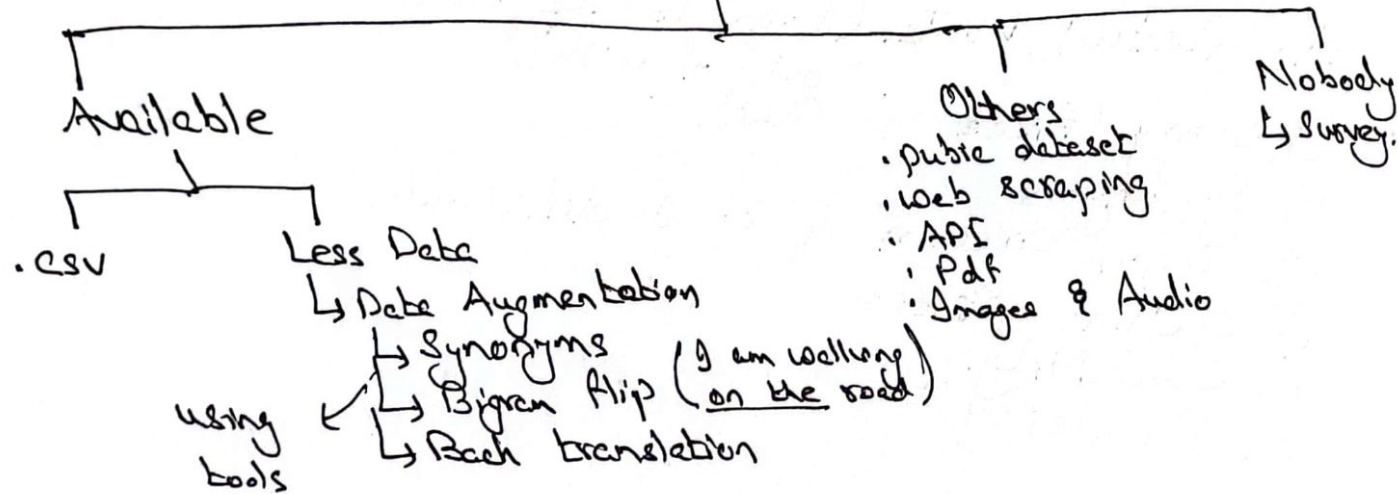 Available
.csv
Less Data
↳ Data Augmentation
↳ Synonyms
↳ Bigram flip (I am walking on the road)
↳ Back translation
using tools
Others
. pubic dataset
. web scraping
. API
. Pdf
. Images & Audio
Nobody
↳ Survey.